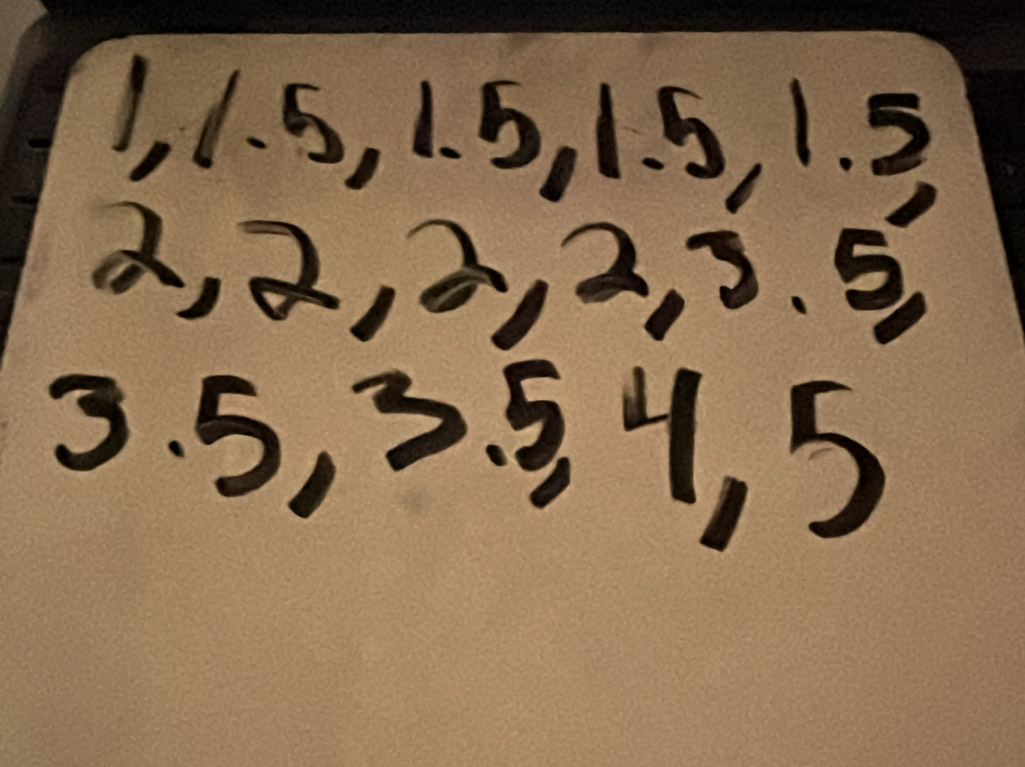 1, 1.5, 1.5, 1.5, 1.5,
2, 2, 2, 2, 3.5,
3.5, 3.5, 4, 5